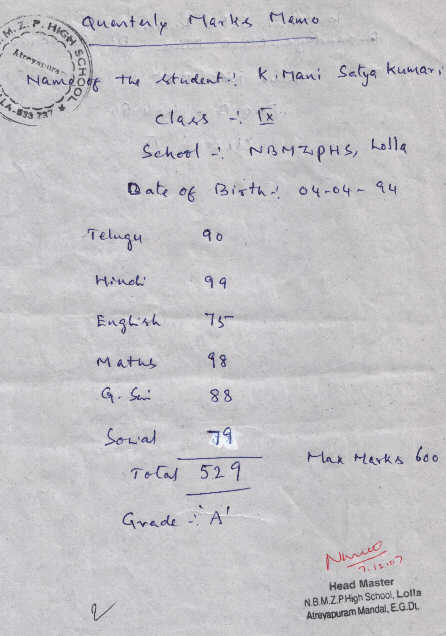 Quarterly Marks Memo
M.Z.P. HIGH SCHOOL
Atreyapuram
LLA-533 237
Name of the Student :- K. Mani Satya Kumari
Class -:- IX
School -:- NBMZPHS, Lolla
Date of Birth -:- 04-04-94
Telugu 90
Hindi 99
English 75
Maths 98
G. Sci 88
Social 79
Total 529 Max Marks 600
Grade -:- 'A'
7.12.07
Head Master
N.B.M.Z.P.High School, Lolla
Atreyapuram Mandal, E.G.Dt.